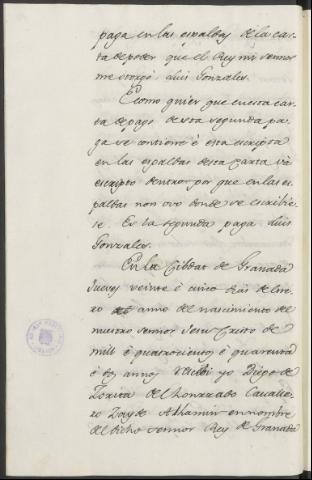 paga en las espaldas de la car-
ta de poder que el Rey mi sennor
me otorgó. Luis Gonzales.
E como quier que en esta car-
ta de pago desta segunda pa-
ga se contiene é está escripta
en las espaldas desta carta vá
escripto dentro por que en las es-
paldas non ovo donde se escribie-
se. Es la segunda paga Luis
Gonzales.
En la Cibdat de Granada
Jueves veinte é cinco dias de
anno del nascimiento de
nuestro sennor Jesu Cristo de
mill é quatrocientos é quarenta
é dos annos recibí yo Diego de
Zorita del honrrado Cavalle-
ro Zayde Alhamin en nombre
del dicho sennor Rey de Granada